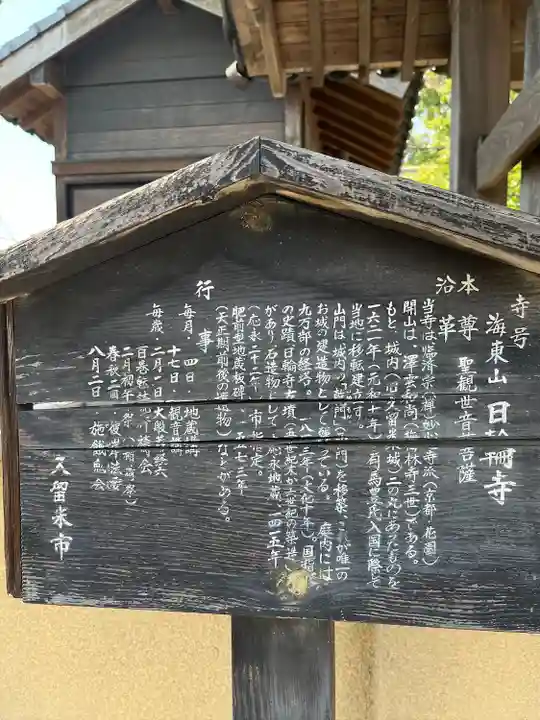 寺号 海東山 日輪寺
本尊 聖観世音菩薩
沿革
当寺は臨済宗(禅)妙心寺派(京都・花園)
開山は、澤雲和尚(梅林寺三世)である。
もと、城内(旧久留米城)二の丸にあったものを
一六二一年(元和七年)有馬豊氏入国に際して
当地に移転建立。
山門は城内の を移築、これが唯一の
お城の建造物として残っている。庭内には
九万部の経塔。一八一三年(文化十年)。国指定
の史蹟日輪寺古墳(五世紀末か六世紀の築造)
があり、石造物として応永地蔵、一四一五年
(応永二十二年)、市指定。
肥前型地蔵板碑、一五七三年
(天正期前後の造物)などがある。
行事
毎月・四日・地蔵講
十七日・観音講
毎歳・二月一日・大般若祭
百巻転読
二月初午 祭(八
春秋二回・彼岸法要
八月二日 施餓鬼会
久留米市